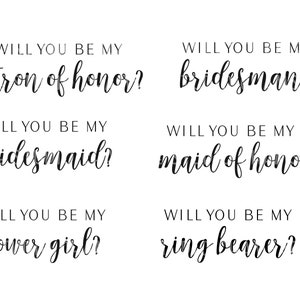 WILL YOU BE MY
tron of honor?
WILL YOU BE M
bridesman
LL YOU BE MY
idesmaid?
WILL YOU BE MY
maid of hono
LL YOU BE MY
ower girl?
WILL YOU BE MY
ring bearer?